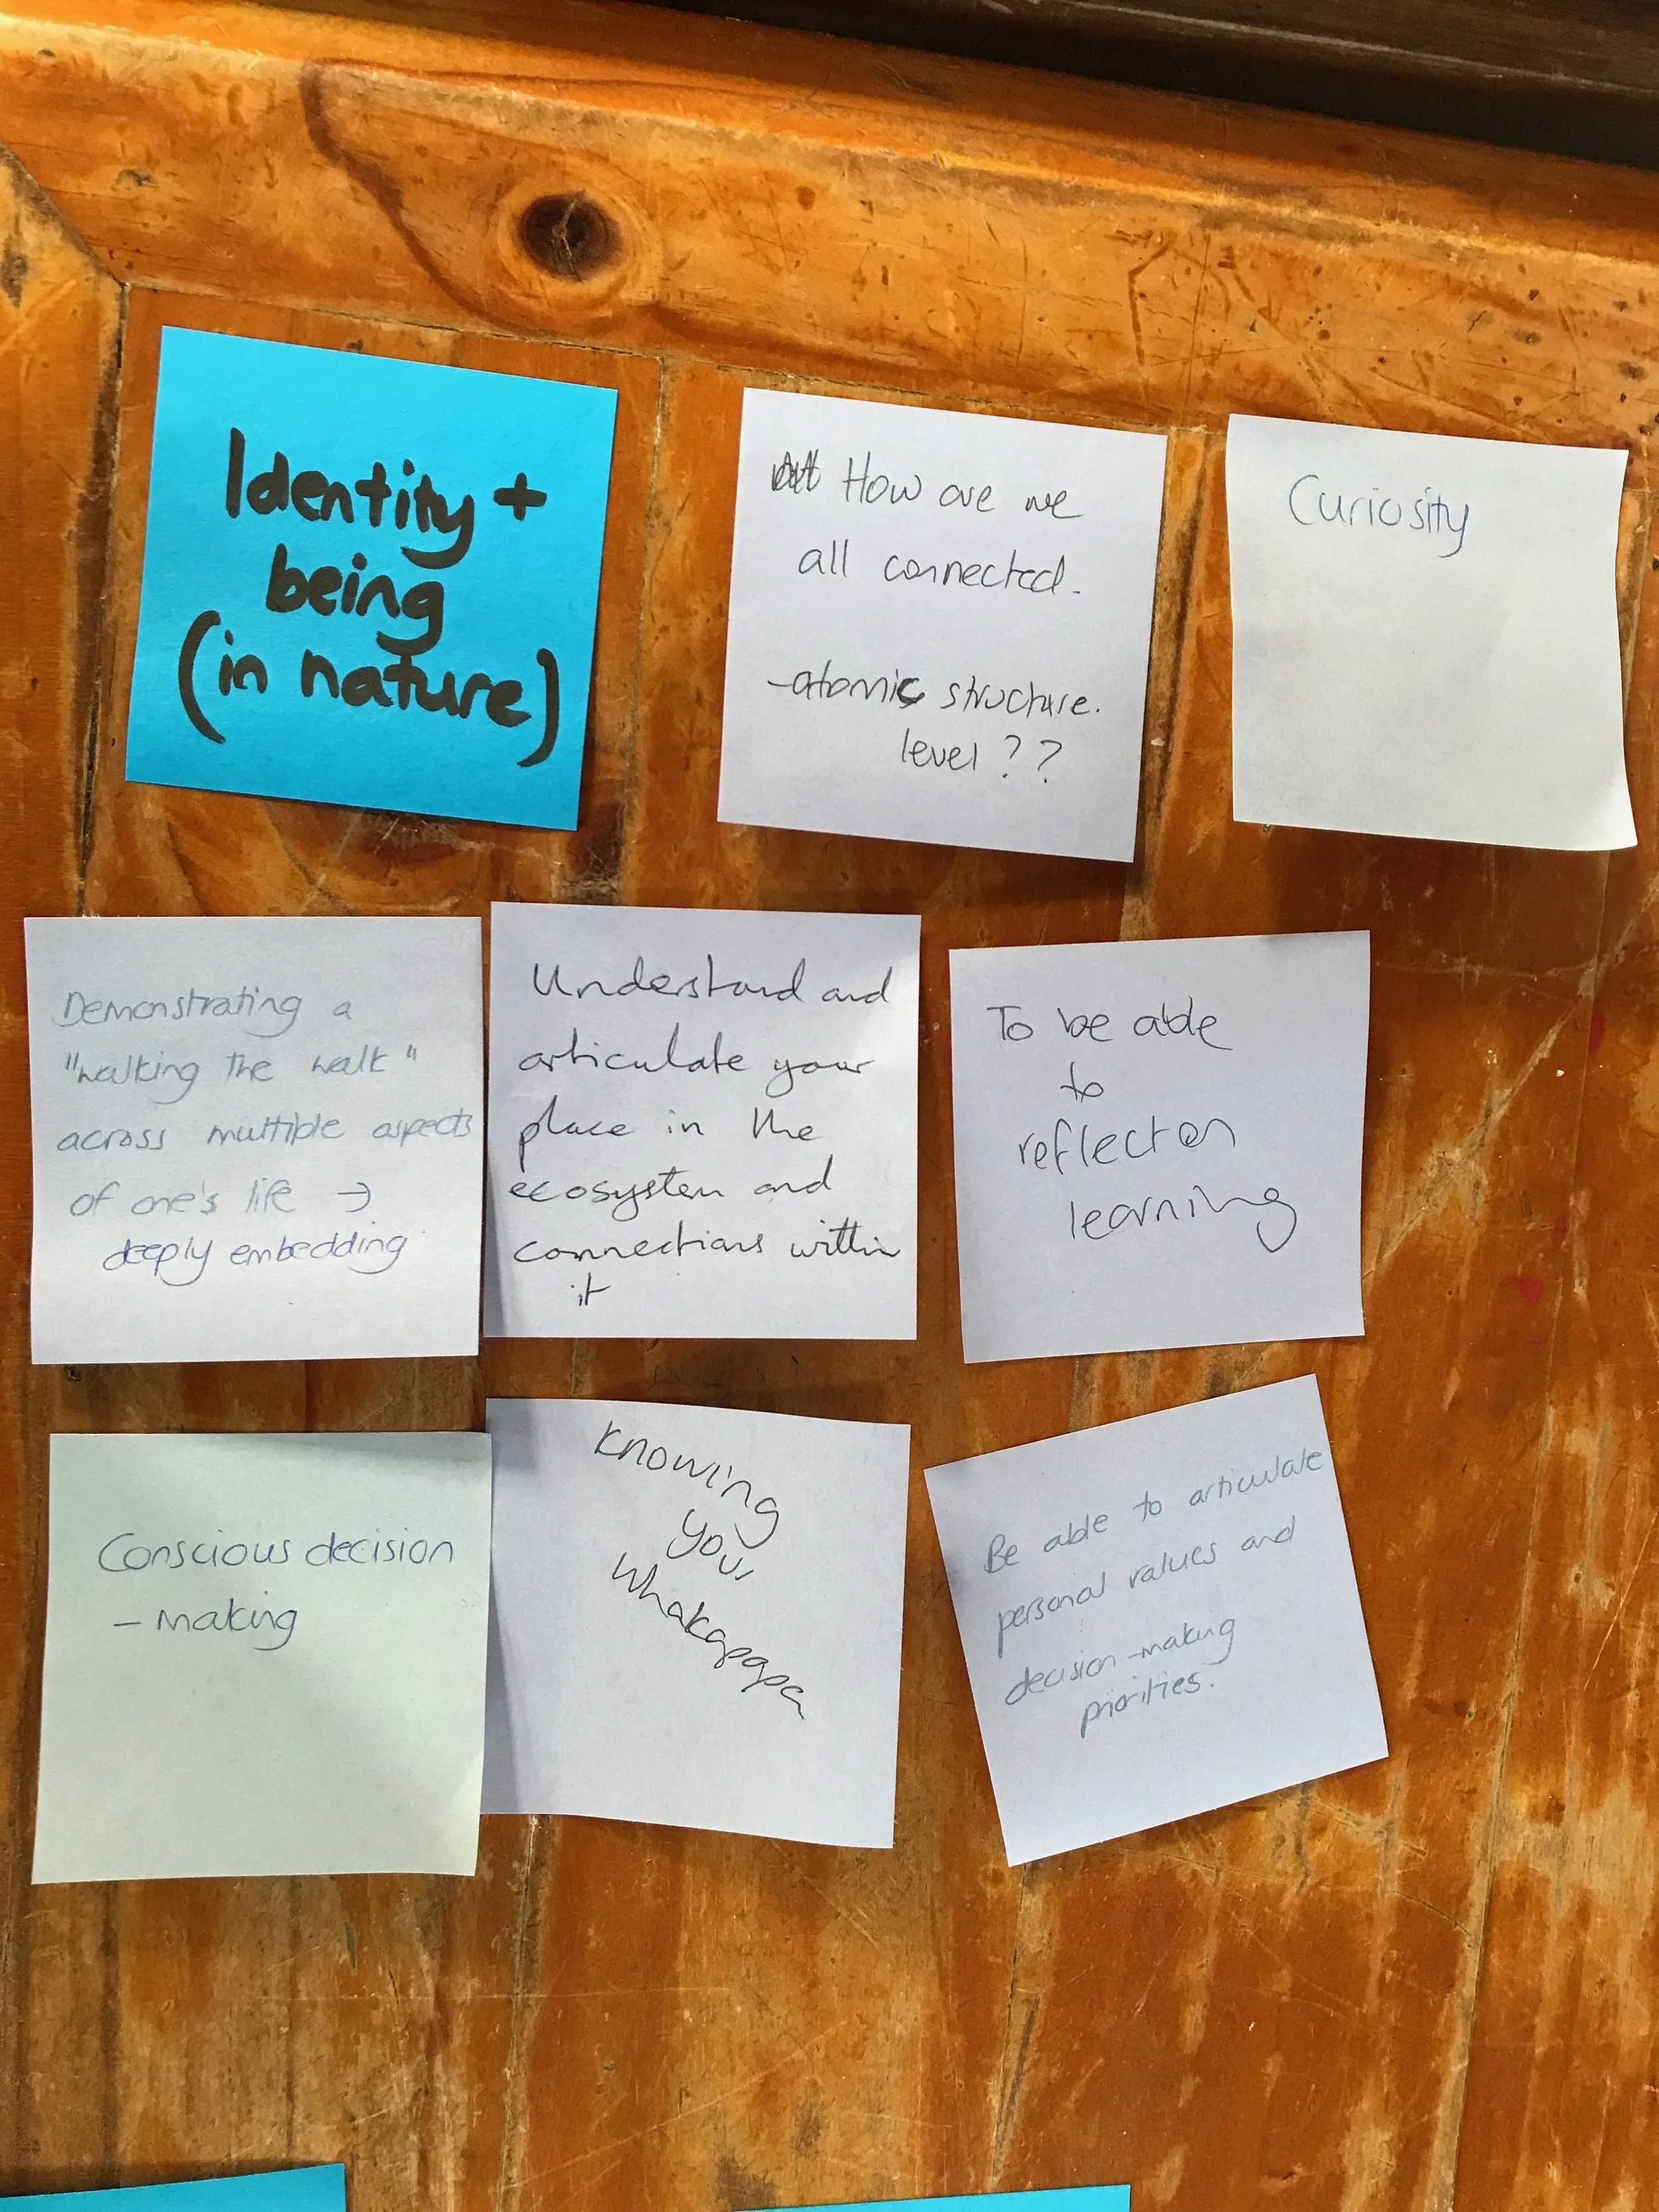 Identity +
being
(in nature)
How are we
all connected.
-atomic structure.
level ??
Curiosity
Demonstrating a
"walking the walk"
across multiple aspects
of one's life →
deeply embedding
Understand and
articulate your
place in the
ecosystem and
connections within
it
To be able
to
reflect on
learning
Conscious decision
- making
Knowing
your
whakapapa
Be able to articulate
personal values and
decision-making
priorities.